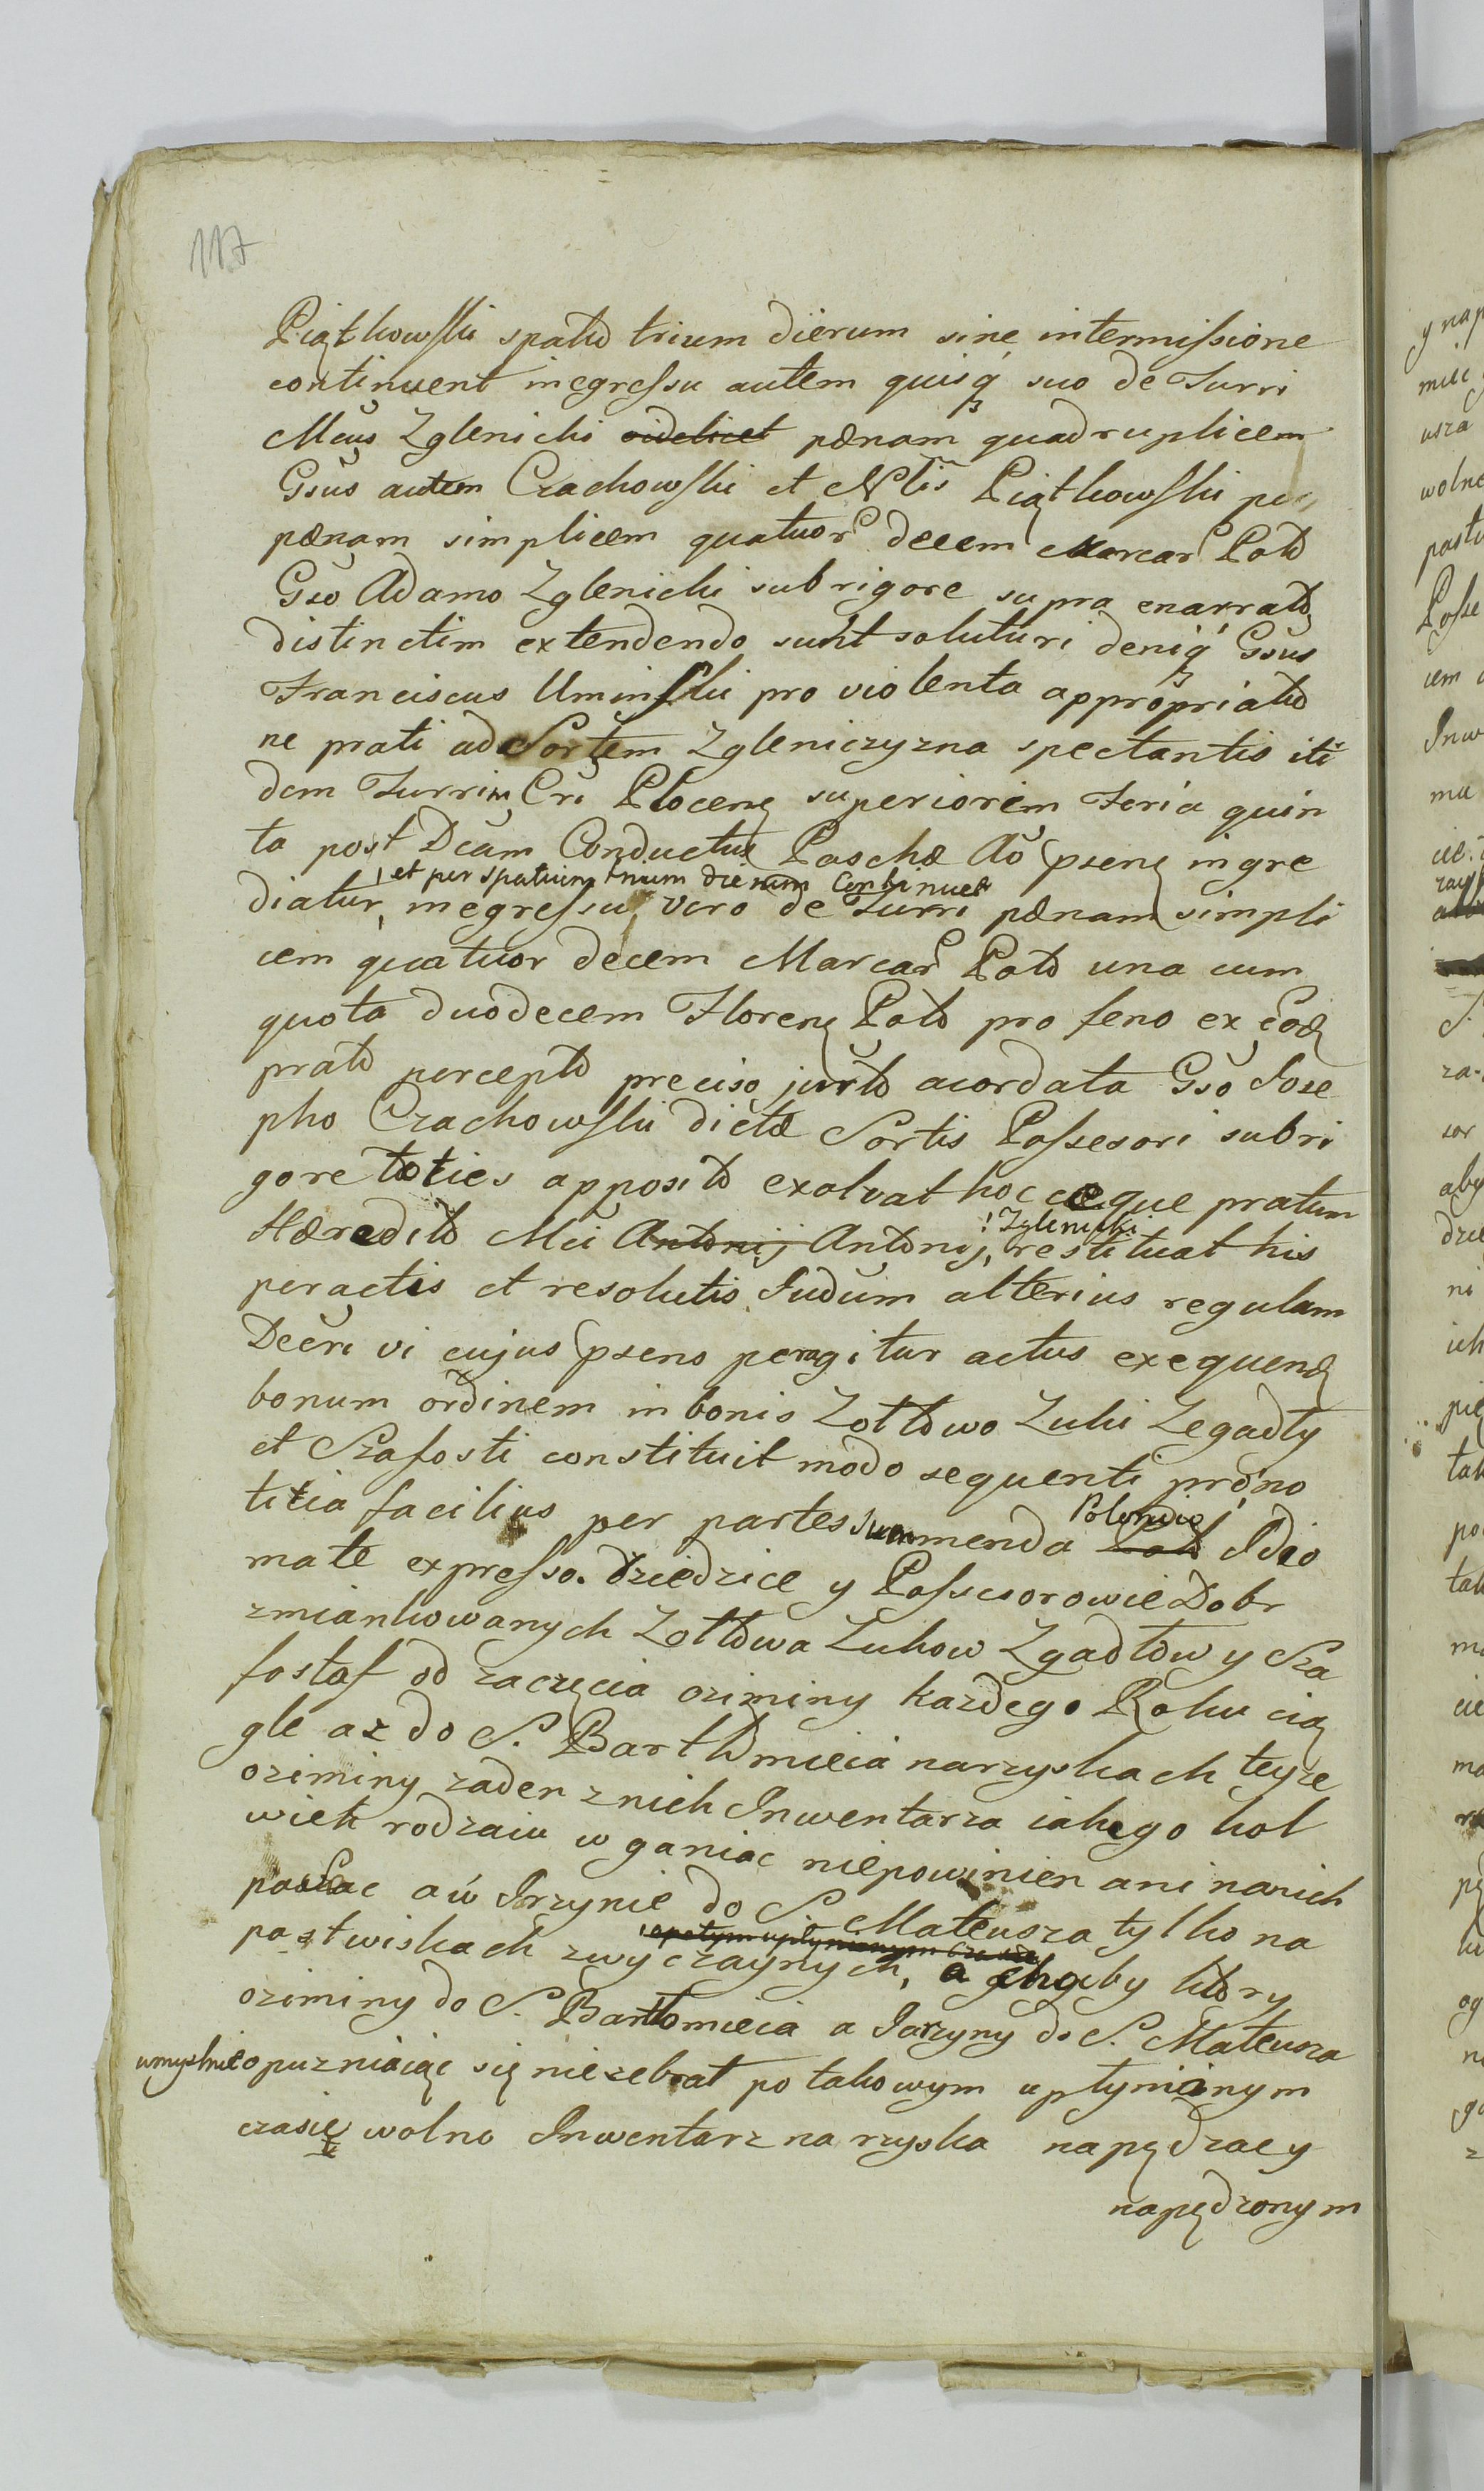 117
Piątkowski spatio trium dierum sine intermissione
continuent in egressu autem quisq suo de Turri
Mcus Zglenicki videlicet pænam quadruplicem
Gsus autem Czachowski et Nblis Piątkowski per
pænam simplicem quatuor decem Marcar Polo
Gso Adamo Zglenicki sub rigore supra enarrato
distinctim extendendo sunt soluturi deniq Gsus
Franciscus Uminski pro violenta appropriatio
ne prati ad Sortem Zgleniczyzna spectantis iti
dem Turrim Cri Plocen superiorem Feria quin
ta post Dcam Conductus Paschæ Ao psen ingre
et per spatium trium dierum Continuet
diatur, in egressu vero de Turri pænam simpli
cem quatuor decem Marcar Polo una cum
quota duodecem Floren Polo pro feno ex eod
prato percepto preciso jurto acordata Gso Jose
pho Czachowski dictæ Sortis Possesori sub ri
gore toties apposito exolvat hoc ceque pratum
Zglenicki
Hæredito Mci Antonij Antonij, restituat his
peractis et resolutis Judum alterius regulam
Decri vi cujus psens peragitur actus exequend
bonum ordinem in bonis Zołtowo Zuki Zegadły
et Szafosti constituit modo sequenti pro no
titia facilius per partes summenda Polo Idio
Polonico
mate expresso. Dziedzice y Possesorowie Dobr
zmiankowanych Zołtowa Zukow Zgadłow y Sza
fostaf od zaczęcia oziminy każdego Roku cią
gle az do S. Bartłomieia na rzyskach teyze
oziminy zaden z nich Inwentarza iakiego kol
wiek rodzaiu w ganiac niepowinien ani na nich
pasac a w Jrzynie do S. Mateusza tylko na
a po tym upłynionym czasie
pastwiskach zwyczaynych, a choby ktory
oziminy do S. Bartłomieia a Jarzyny do S. Mateusza
umyslnie opuzniaiąc się niezebrał po takowym upłynionym
czasie wolno Inwentarz na rzyska napędzac y
napędzonym